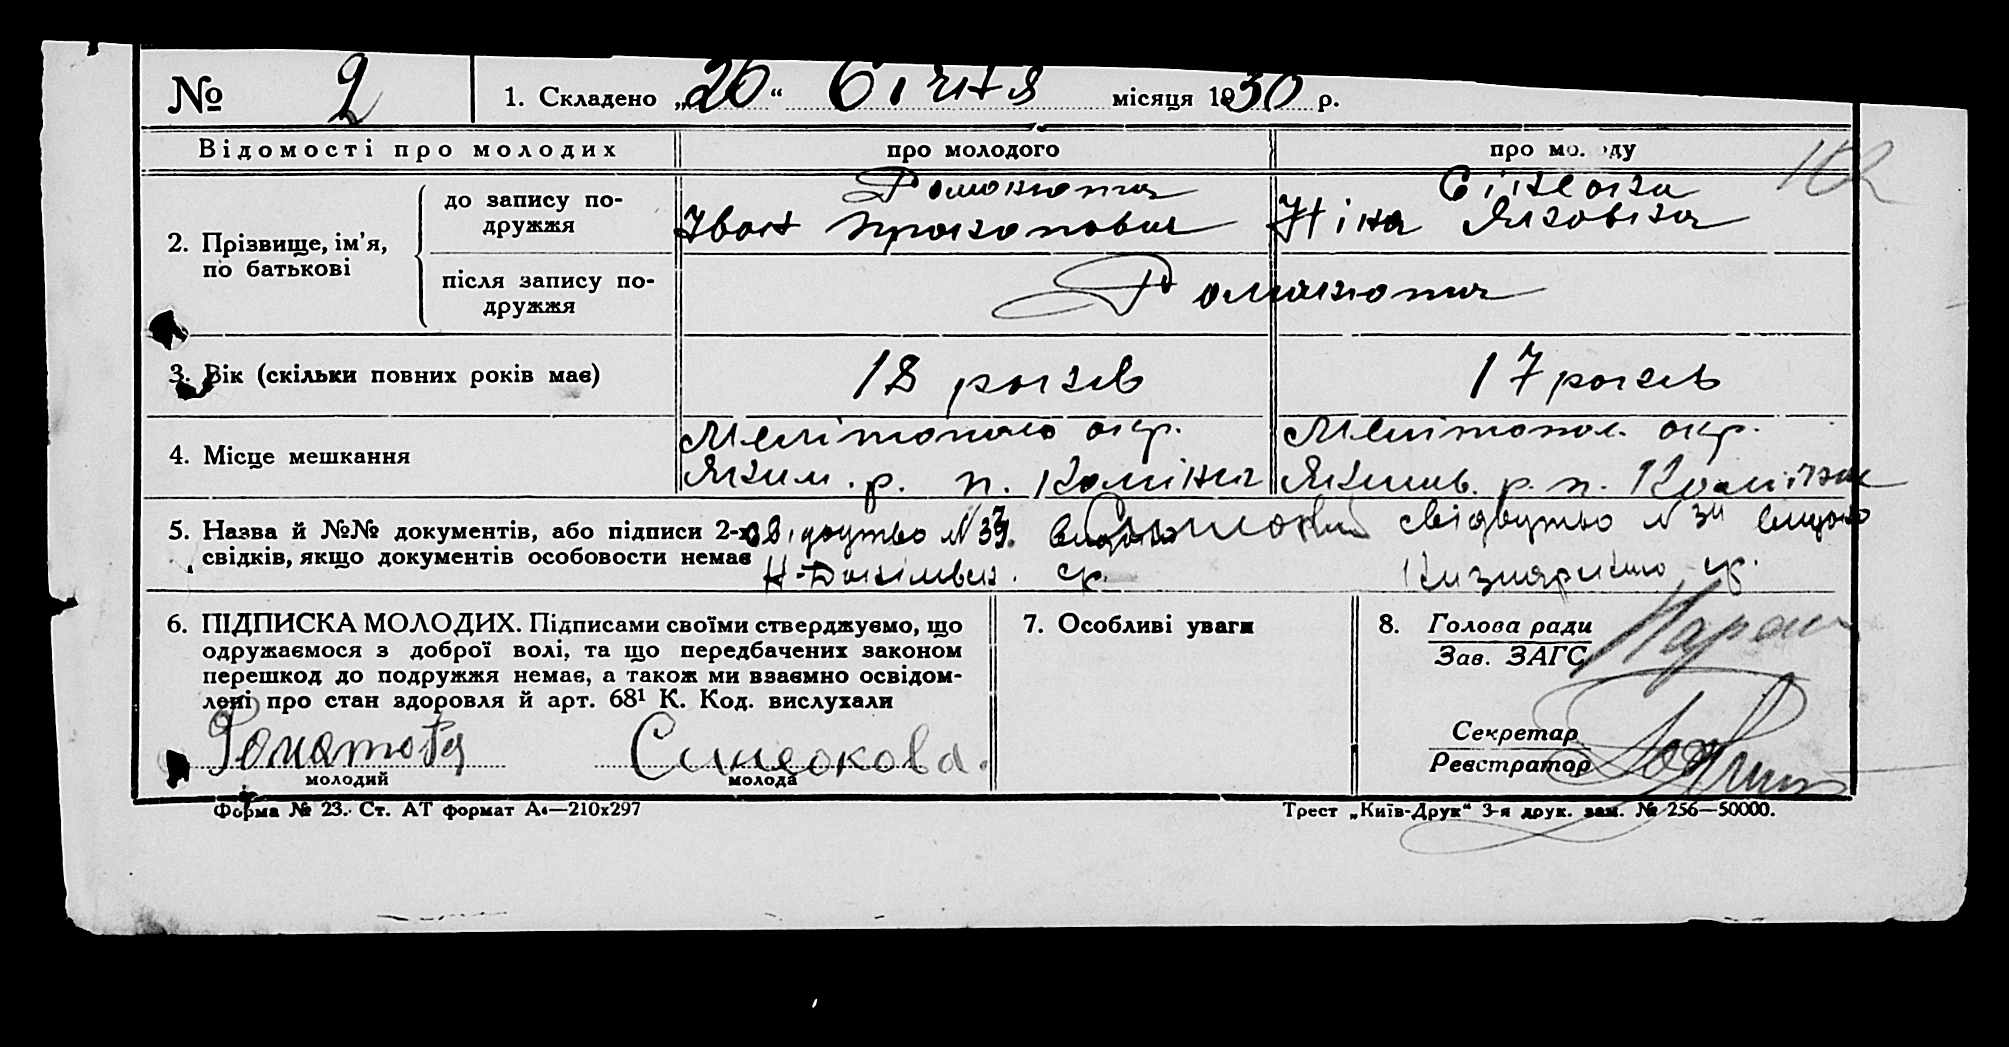 № 2 1. Складено „26“ Січня місяця 1930 р.
Відомості про молодих про молодого про мо. ду
102
2. Прізвище, ім’я, по батькові
до запису по-
дружжя
Іван Прокопович
Ніна Яковівна
після запису по-
дружжя
3. Вік (скільки повних років має) 18 років 17 років
4. Місце мешкання
Мелітополь окр. Мелітопол. окр.
Яким. р. п. Якимів. р. п.
5. Назва й №№ документів, або підписи 2-х свідвутво N видано свідвутво N 34 видано
свідків, якщо документів особовости немає ср. ср.
6. ПІДПИСКА МОЛОДИХ. Підписами своїми стверджуємо, що
одружаємося з доброї волі, та що передбачених законом
перешкод до подружжя немає, а також ми взаємно освідом-
лені про стан здоровля й арт. 68¹ К. Код. вислухали
Синеокова.
молодий молода
7. Особливі уваги
8. Голова ради
Зав. ЗАГС
Секретар
Реєстратор
Форма № 23. Ст. АТ формат А4—210х297 Трест „Київ-Друк“ 3-я друк. зам. № 256—50000.